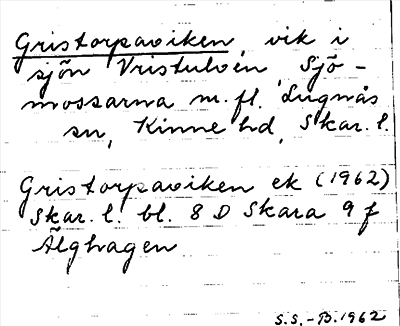 Gristorpaviken, vik i
sjön Vristulven, Sjö-
mossarna m. fl. Lugnås
sn, Kinne hd, Skar. l.
Gristorpaviken ek (1962)
Skar. l. bl. 8 D Skara 9 f
Älghagen
S.S.-B. 1962